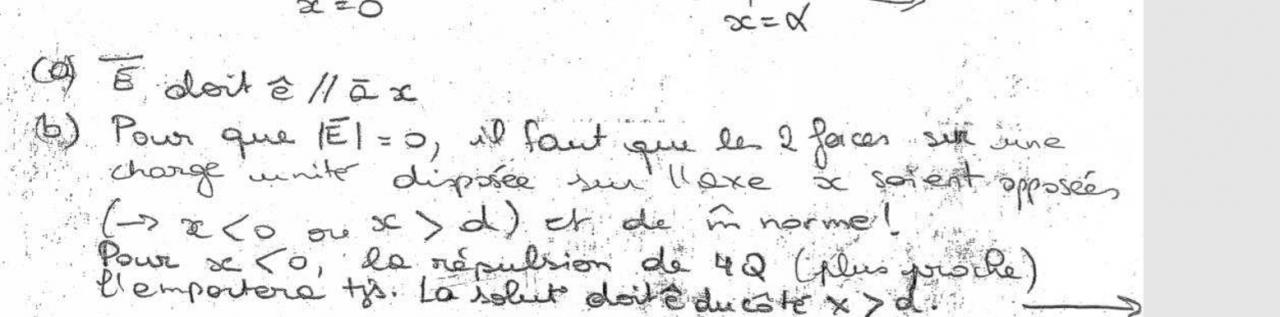 x=0
x=d
(a) E̅ doit ê // à x
(b) Pour que |E̅| = 0, il faut que les 2 forces sur une
charge unité disposée sur l'axe x soient opposées
(→ x < 0 ou x > d) et de m̂ norme!
Pour x < 0, la répulsion de 4Q (plus proche)
l'emportera tjs. La solut° doit ê du côté x > d. →